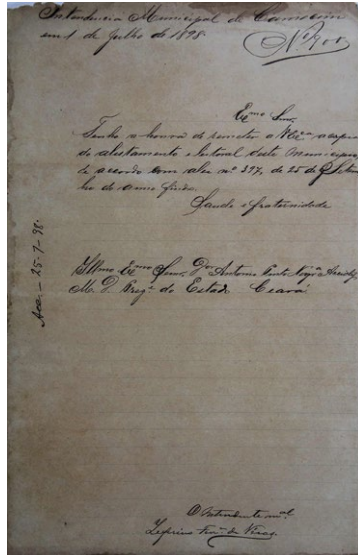 Intendencia Municipal de Camocim
em 1 de Julho de 1898.
Exmo Snr.
Tenho a honra de remetter a V Exa a copia
do alistamento eleitoral deste Municipio
de accordo com a lei nº 397, de 25 de
ho do anno findo.
Saude e fraternidade
Illmo Exmo Snr. Dor Antonio Pinto Nogra Accioly
M. D. Presge do Estado Ceará
Acc. - 25-7-98.
O Intendente mal.